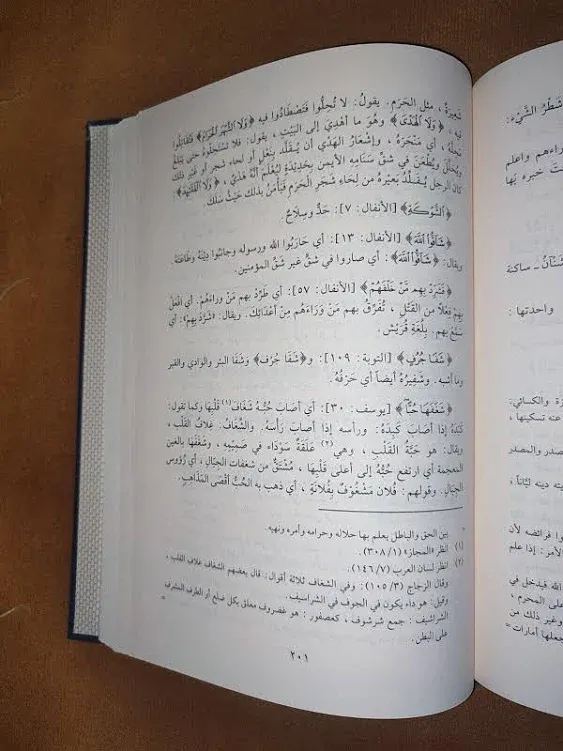 شَعِيرَةٌ، مثل الحَرَمِ. يقولُ: لا تُحِلُّوا فَتَصْطَادُوا فيه ﴿وَلَا ٱلشَّهْرَ ٱلْحَرَامَ﴾ فَتُقَاتِلُوا
فيه، ﴿وَلَا ٱلْهَدْىَ﴾ وهُوَ ما أُهْدِيَ إلى البَيْتِ، يقول: فلا تَسْتَحِلُّوهُ حتى يَبْلُغَ
مَحِلَّهُ، أي مَنْحَرَهُ، وإشْعَارُ الهَدْيِ أن يُقَلَّدَ بِنَعْلٍ أو لحاء شجر أو غير ذلك
ويُجَلَّلَ ويُطْعَنَ في شقِّ سَنَامِهِ الأيمنِ بِحَدِيدَةٍ لِيُعْلَمَ أنَّهُ هَدْيٌ، ﴿وَلَا ٱلْقَلَٰٓئِدَ﴾:
كَانَ الرجلُ يُقَلِّدُ بَعِيرَهُ من لِحَاءِ شَجَرِ الْحَرَمِ فَيَأْمَنُ بذلك حَيْثُ سَلَكَ.
﴿ٱلشَّوْكَةِ﴾ [الأنفال: ٧]: حَدٌّ وسِلاحٌ.
﴿شَآقُّواْ ٱللَّهَ﴾ [الأنفال: ١٣]: أي حَارَبُوا الله ورسوله وجانبُوا دِينَهُ وطَاعَتَهُ.
ويقال: ﴿شَآقُّواْ ٱللَّهَ﴾: أي صاروا في شقٍّ غير شقِّ المؤمنين.
﴿فَشَرِّدْ بِهِم مَّنْ خَلْفَهُمْ﴾ [الأنفال: ٥٧]: أي طَرِّدْ بهم مَنْ وراءهُمْ. أي افعَلْ
بِهِمْ فِعْلاً من القَتْلِ، تُفَرِّقُ بهم مَنْ وَرَاءَهُمْ مِنْ أعْدَائِكَ. ويقال: «شَرِّدْ بِهِمْ»: أي
سَمِّعْ بهم. بِلُغَةِ قُرَيْش.
﴿شَفَا جُرُفٍ﴾ [التوبة: ١٠٩]: و﴿شَفَا جُرُفٍ﴾ وشَفَا البئرِ والوادي والقبرِ
وما أشبهه. وشَفِيرُهُ أيضاً أي حَرْفُهُ.
﴿شَغَفَهَا حُبًّا﴾ [يوسف: ٣٠]: أي أصَابَ حُبُّهُ شَغَافَ (١) قَلْبِهَا وكما تقول:
كَبَدَهُ إذا أصَابَ كَبِدَهُ. ورأسه إذا أصابَ رَأسَهُ. والشَّغَافُ: غِلافُ القَلْبِ،
ويقالُ: هُوَ حَبَّةُ القَلْبِ، وهي (٢) عَلَقَةٌ سَوْدَاء في صَمِيمِهِ. وشَعَفَهَا بالعينِ
المعجمة أي ارتفع حُبُّهُ إلى أعلى قَلْبِهَا، مُشْتَقٌّ من شَعَفَاتِ الجِبَالِ، أي رُؤُوسِ
الجِبَالِ. وقولهم: فُلان مَشْغُوفٌ بِفُلانَةٍ، أي ذهب به الحُبُّ أقْصَى المَذَاهِبِ.
= بين الحق والباطل يعلم بها حلاله وحرامه وأمره ونهيه.
(١) انظر «المجاز» (١/ ٣٠٨).
(٢) انظر لسان العرب (٧/ ١٤٦).
وقال الزجاج (٣/ ١٠٥): وفي الشغاف ثلاثة أقوال: قال بعضهم الشغاف غلاف القلب،
وقيل: هو داء يكون في الجوف في الشراسيف.
الشراسيف: جمع شرسوف، كعصفور: هو غضروف معلق بكل ضلع أو الطرف المشرف
على البطن. =
٢٠١
شَطْرُ الشَّيْءِ:
راءهم واعلم
خبره بها
شَنَآنُ ـ ساكنة
واحدتها:
زة والكسائي،
عنه تسكينها،
صدر والمصدر
دينه لَيّاناً،
وا فرائضه لأن
الأمر: إذا علم
الله فيدخل في
على المحرم،
وغير ذلك من
جعلها أمارات =